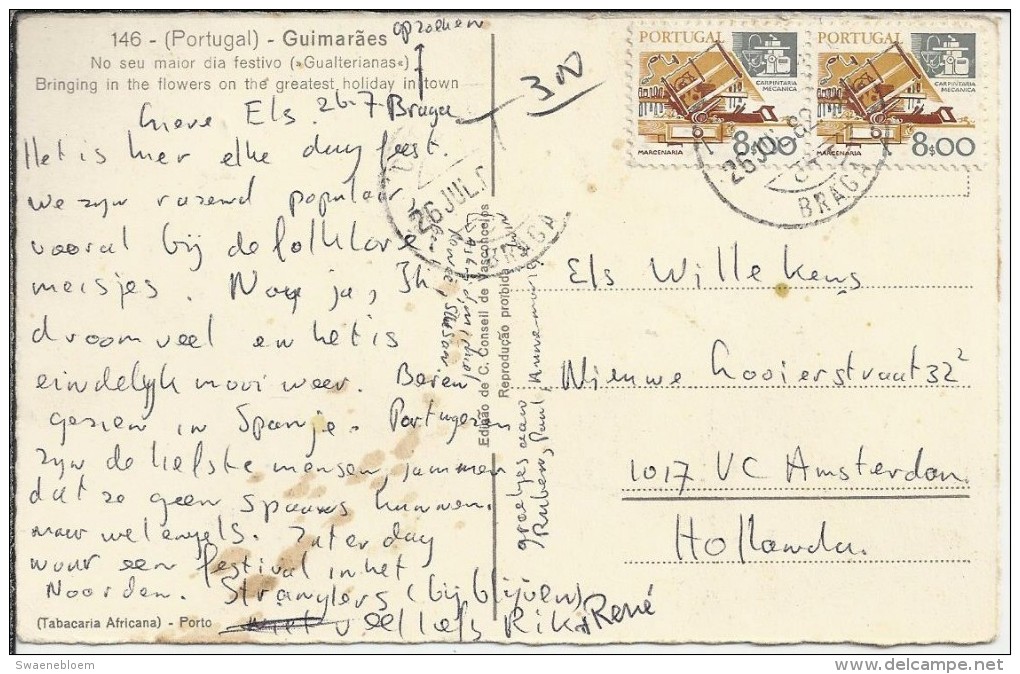 146 - (Portugal) - Guimarães
No seu maior dia festivo («Gualterianas«)
Bringing in the flowers on the greatest holiday in town
opzoeken
300
Lieve Els. 26-7 Braga
Het is hier elke dag feest.
we zijn razend populair,
vooral bij de folklore
meisjes. Nou ja, 3h
droom veel en het is
eindelijk mooi weer. Beren
gezien in Spanje. Portugezen
zijn de liefste mensen, jammer
dat ze geen Spaans kunnen.
maar wel engels. Zaterdag
naar een festival in het
Noorden. Stranglers (bij blijven)
veel liefs Rik, René
(Tabacaria Africana) - Porto
Edição de C. Conseil de Vasconcelos
Reprodução proibida
groetjes aan
Ruben, Paul, Annemarie,
26 JUL.
BRAGA
PORTUGAL
CARPINTARIA
MECANICA
MARCENARIA
8$00
PORTUGAL
CARPINTARIA
MECANICA
MARCENARIA
8$00
26 JUL. 82
BRAGA
Els Willekens
Nieuwe Looierstraat 32²
1017 VC Amsterdam
Hollanda.
Swaenebloem
delcampe.net